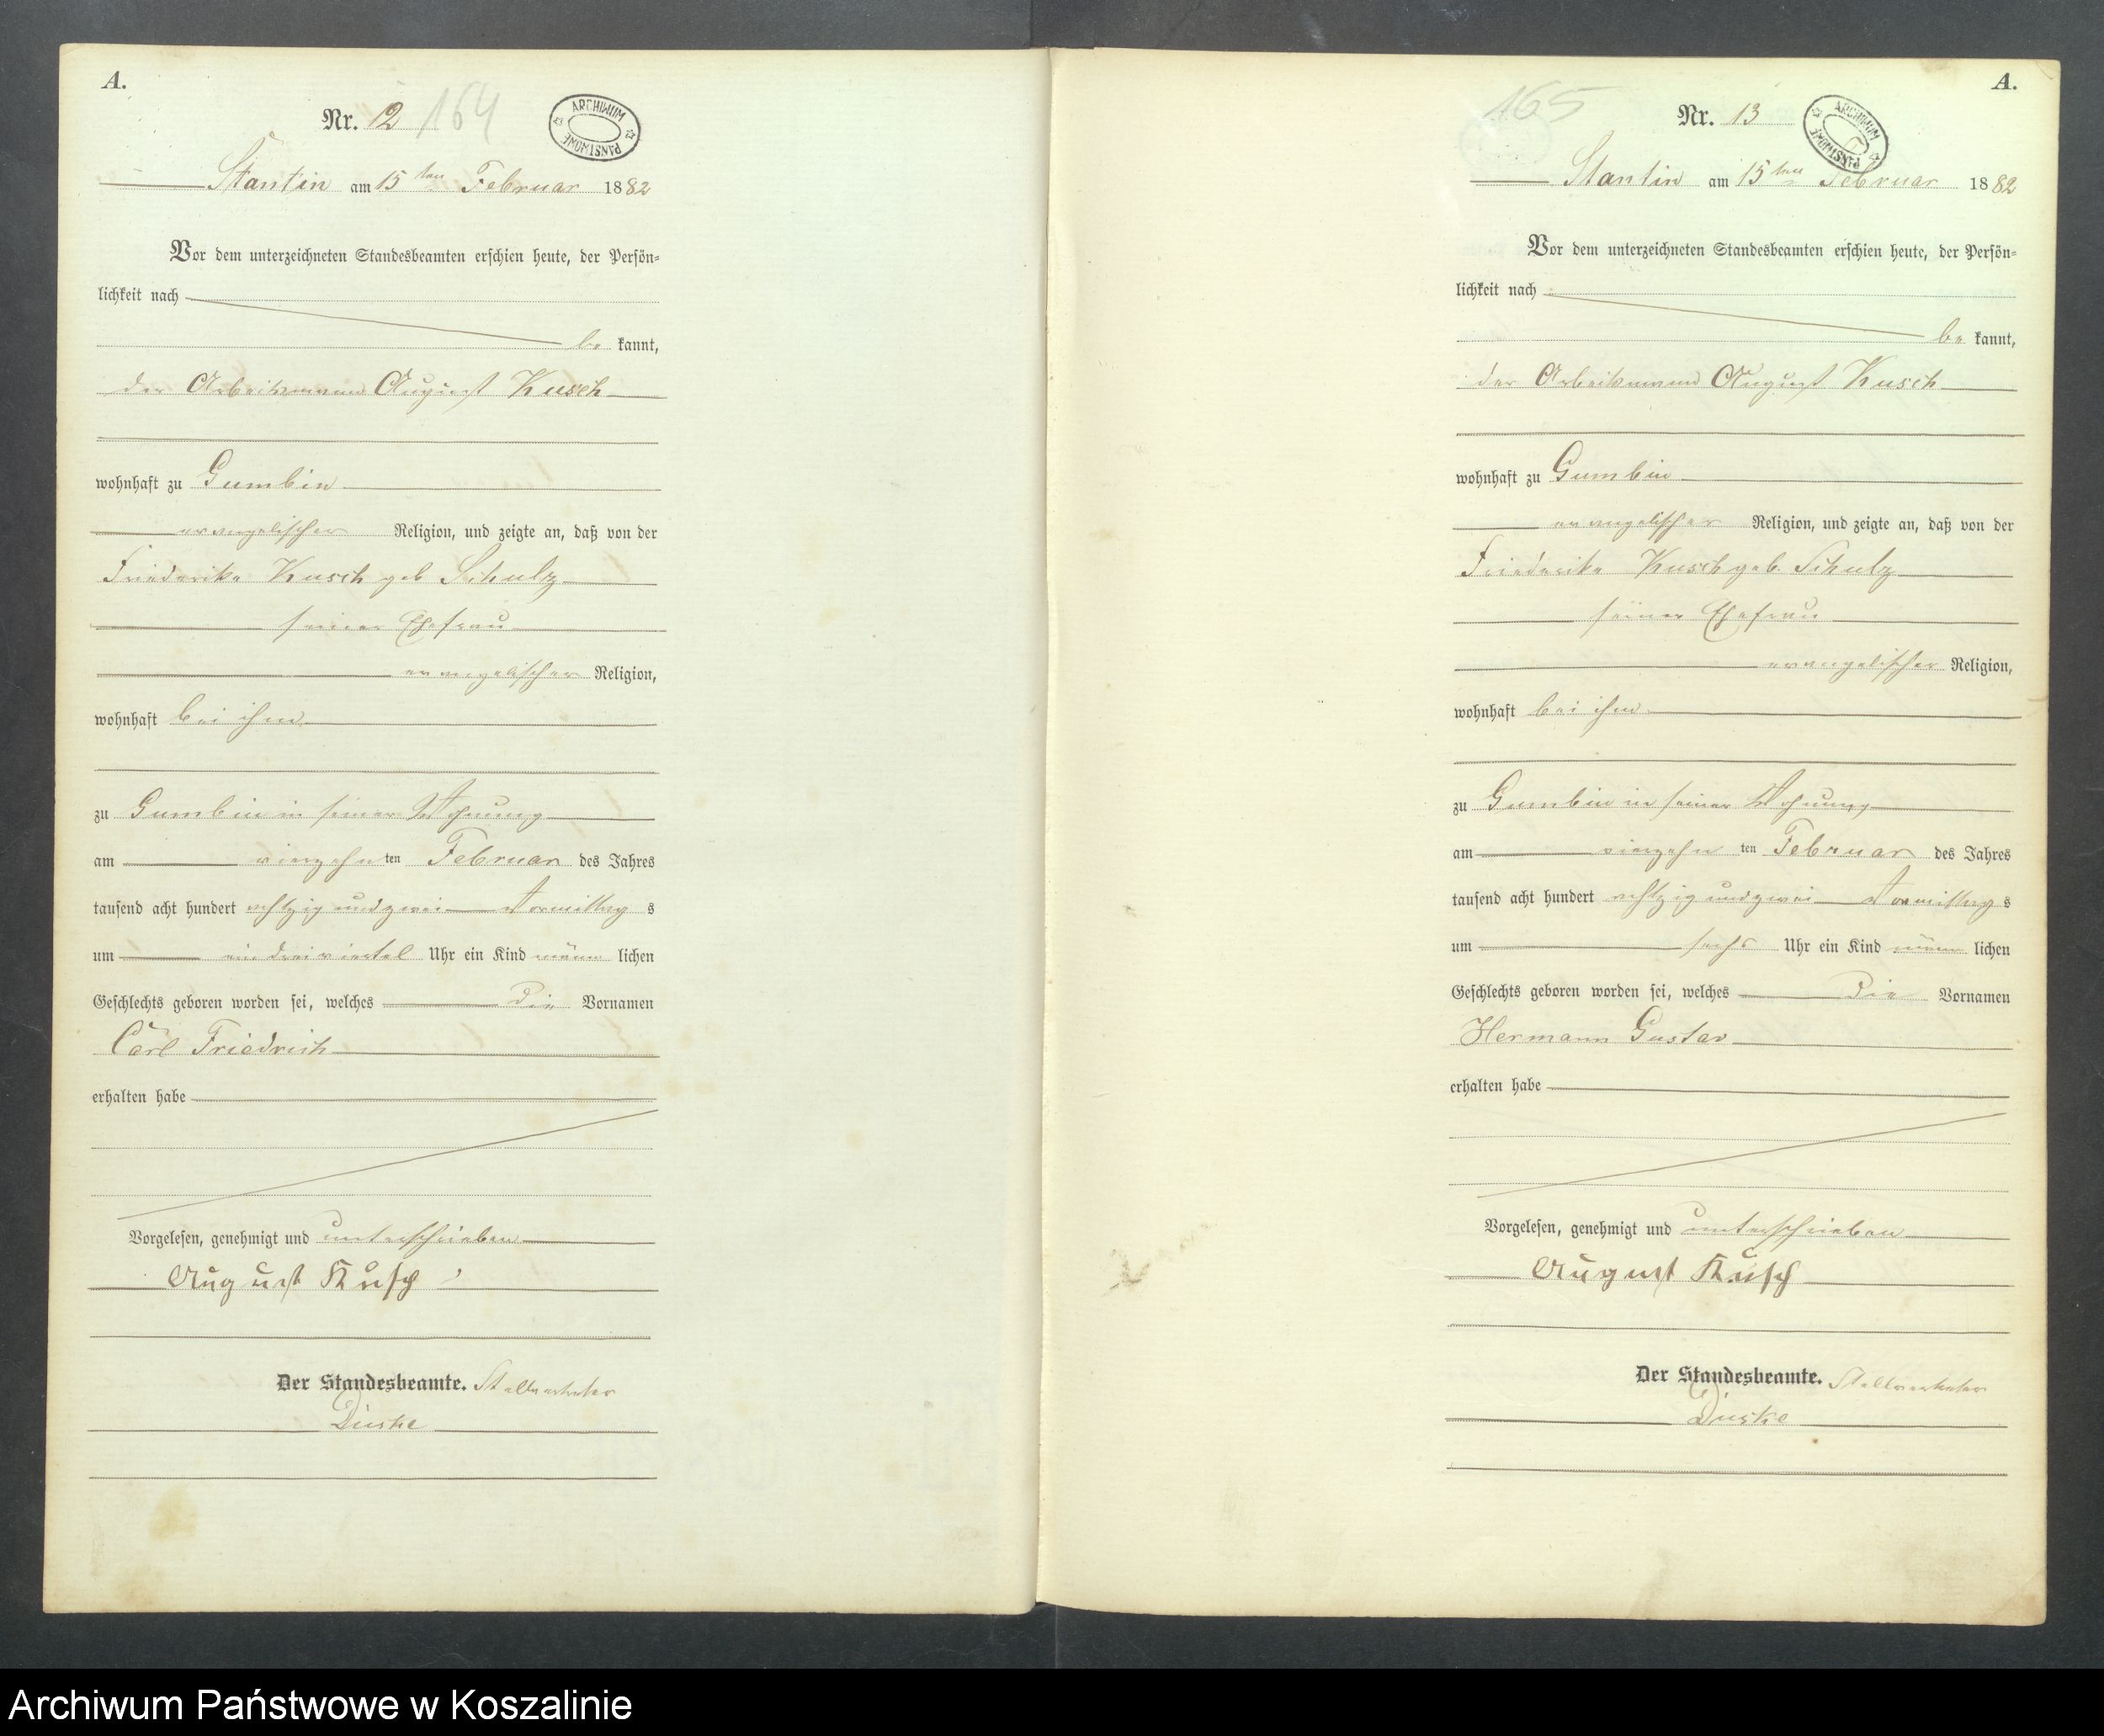 A.
Nr. 12 164
ARCHIWUM PAŃSTWOWE
Stantin am 15ten Februar 1882
Vor dem unterzeichneten Standesbeamten erschien heute, der Persön-
lichkeit nach
be kannt,
der Arbeitsmann August Kusch
wohnhaft zu Gumbin
evangelischer Religion, und zeigte an, daß von der
Friederike Kusch geb Schulz
seiner Ehefrau
evangelischer Religion,
wohnhaft bei ihm
zu Gumbin in seiner Wohnung
am vierzehn ten Februar des Jahres
tausend acht hundert achtzig und zwei Vormittag s
um ein dreiviertel Uhr ein Kind männ lichen
Geschlechts geboren worden sei, welches die Vornamen
Carl Friedrich
erhalten habe
Vorgelesen, genehmigt und unterschrieben
August Kusch
Der Standesbeamte. Stellvertreter
Duske
A.
165 Nr. 13
ARCHIWUM PAŃSTWOWE
Stantin am 15ten Februar 1882
Vor dem unterzeichneten Standesbeamten erschien heute, der Persön-
lichkeit nach
be kannt,
der Arbeitsmann August Kusch
wohnhaft zu Gumbin
evangelischer Religion, und zeigte an, daß von der
Friederike Kusch geb. Schulz
seiner Ehefrau
evangelischer Religion,
wohnhaft bei ihm
zu Gumbin in seiner Wohnung
am vierzehn ten Februar des Jahres
tausend acht hundert achtzig und zwei Vormittag s
um sechs Uhr ein Kind männ lichen
Geschlechts geboren worden sei, welches die Vornamen
Hermann Gustav
erhalten habe
Vorgelesen, genehmigt und unterschrieben
August Kusch
Der Standesbeamte. Stellvertreter
Duske
Archiwum Państwowe w Koszalinie